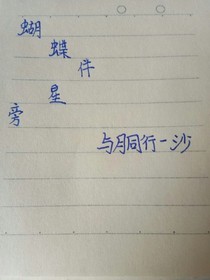 蝴
蝶
件
星
旁
与月同行一沙